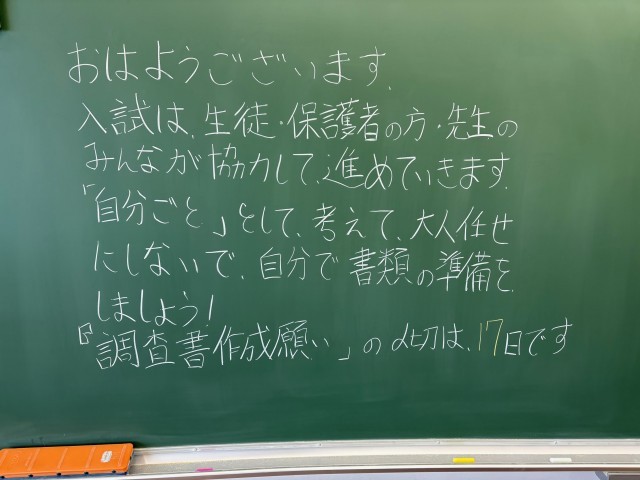 おはようございます.
入試は、生徒・保護者の方・先生の
みんなが協力して、進めていきます.
「自分ごと」として、考えて、大人任せ
にしないで、自分で書類の準備を
しましょう!
『調査書作成願い」の〆切は、17日です